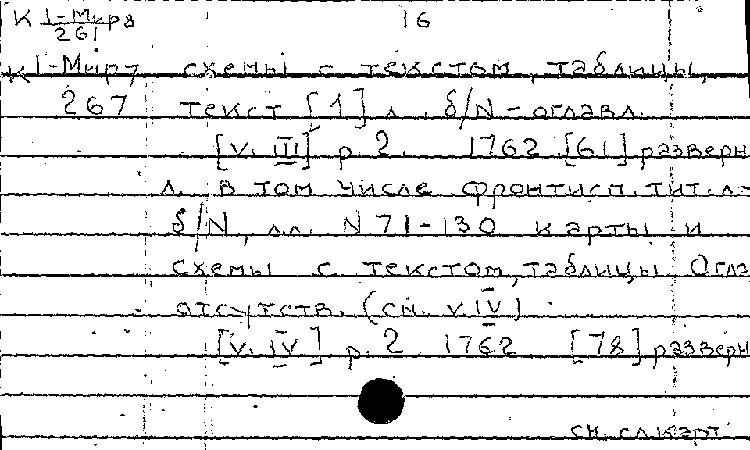 К 1-Мира 16
261
К 1-Мир, схемы с текстом, таблицы,
267 текст [1] л. б/N - оглавл.
[v. III] p. 2. 1762 [61] разверн
л. в том числе фронтисп. тит. л-
б/N, лл. N 71-130 карты и
схемы с текстом, таблицы Огла
отсутств. (см. v. IV)
[v. IV] p. 2 1762 [78] разверн
см. сл. карт